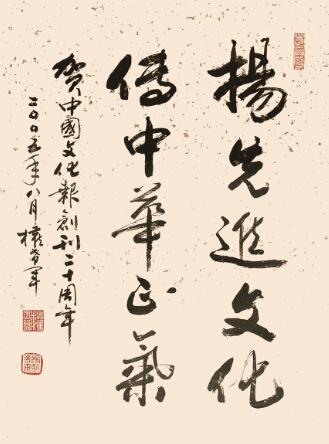 揚先進文化
傳中華正氣
賀中國文化報創刊二十周年
二〇〇五年八月 權希軍